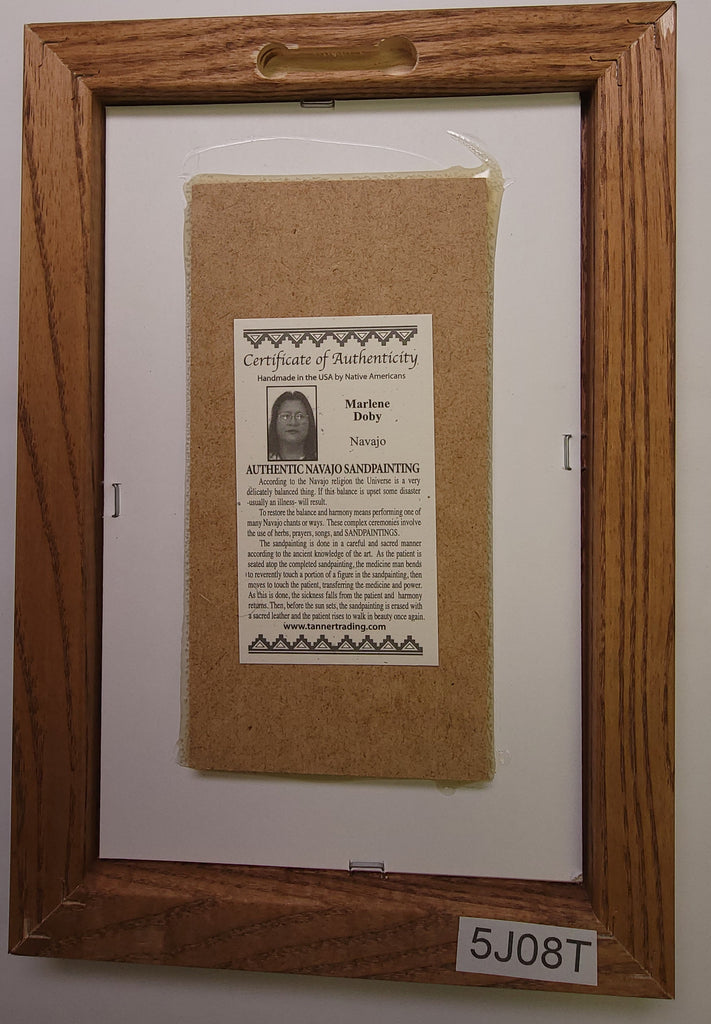 Certificate of Authenticity
Handmade in the USA by Native Americans
Marlene
Doby
Navajo
AUTHENTIC NAVAJO SANDPAINTING
According to the Navajo religion the Universe is a very
delicately balanced thing. If this balance is upset some disaster
-usually an illness- will result.
To restore the balance and harmony means performing one of
many Navajo chants or ways. These complex ceremonies involve
the use of herbs, prayers, songs, and SANDPAINTINGS.
The sandpainting is done in a careful and sacred manner
according to the ancient knowledge of the art. As the patient is
seated atop the completed sandpainting, the medicine man bends
to reverently touch a portion of a figure in the sandpainting, then
moves to touch the patient, transferring the medicine and power.
As this is done, the sickness falls from the patient and harmony
returns. Then, before the sun sets, the sandpainting is erased with
a sacred leather and the patient rises to walk in beauty once again.
www.tannertrading.com
5J08T